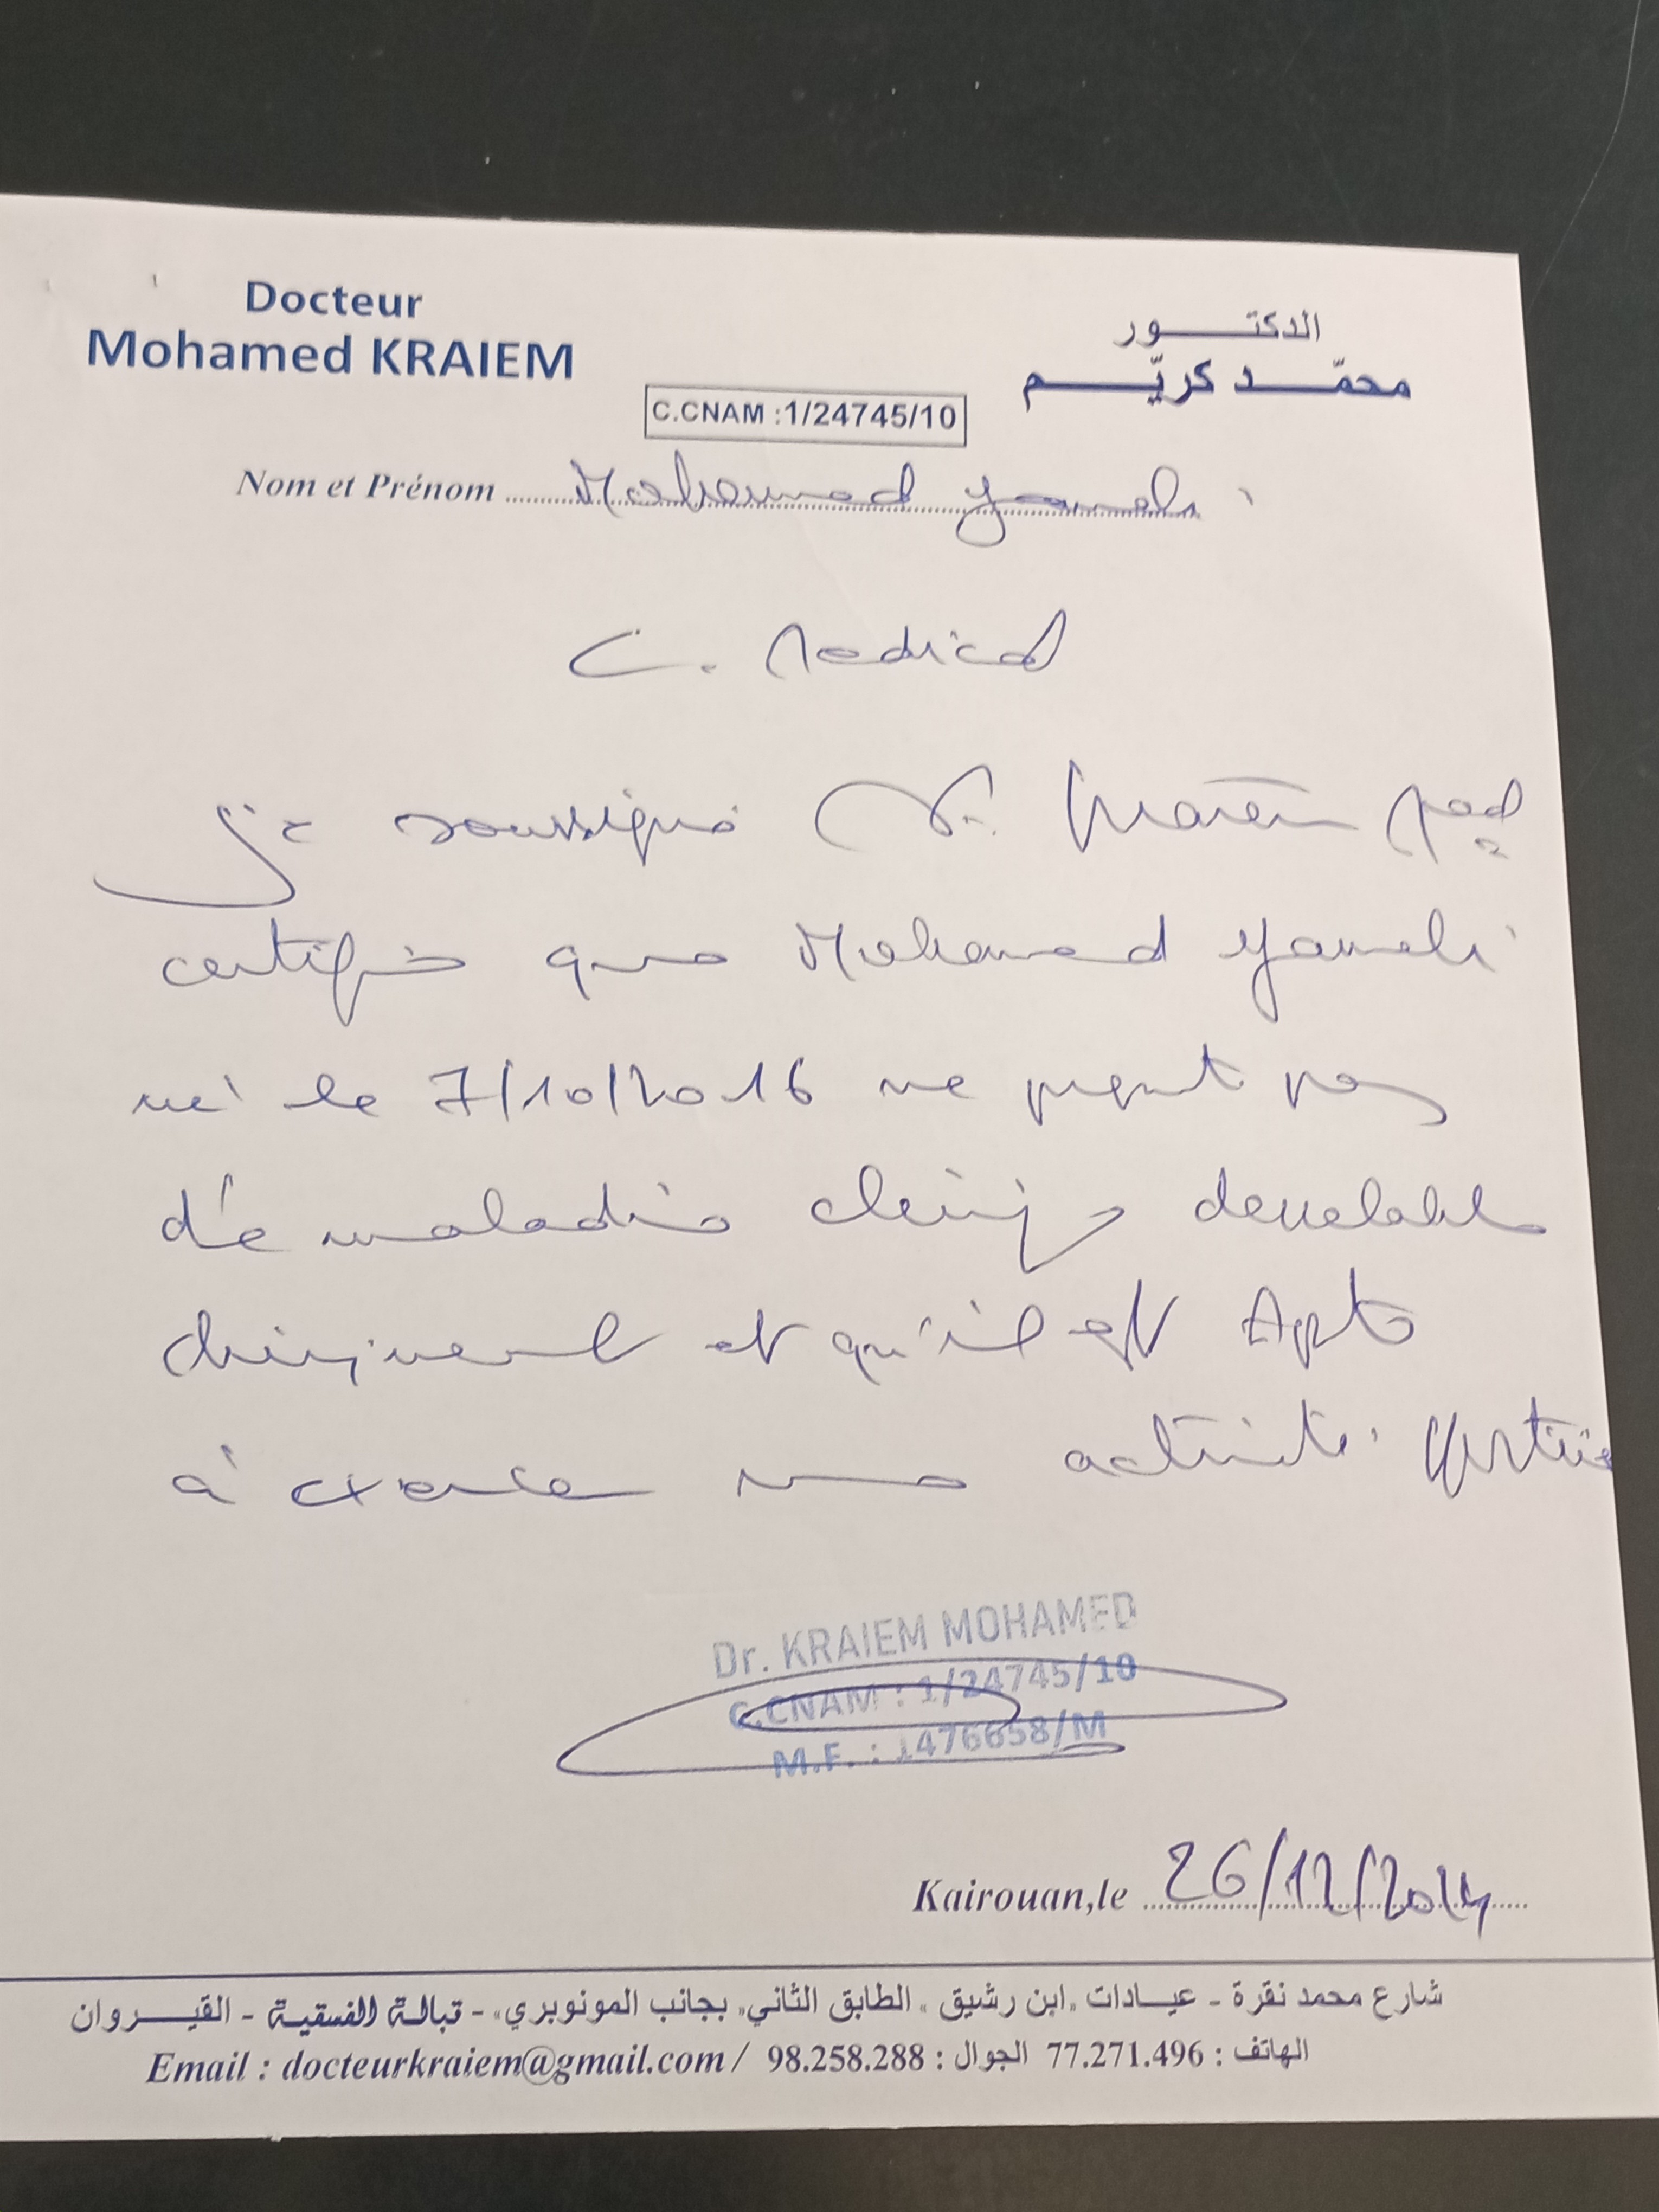 Docteur
Mohamed KRAIEM
الدكتور
محمّد كريّم
C.CNAM :1/24745/10
Nom et Prénom Mohamed
C. Medical
Je soussigné Dr. Kraiem Med
certifie que Mohamed
né le 7/10/2016 ne present pas
de maladie decelable
et qu'il est Apte
à exercer une activité sportive
Dr. KRAIEM MOHAMED
C.CNAM : 1/24745/10
M.F. : 1476658/M
Kairouan,le 26/12/2024
شارع محمد نقرة - عيـــادات "ابن رشيق" الطابق الثاني، بجانب المونوبري، - قبالة الفسقية - القيـــروان
Email : docteurkraiem@gmail.com / 98.258.288 : الجوال 77.271.496 : الهاتف